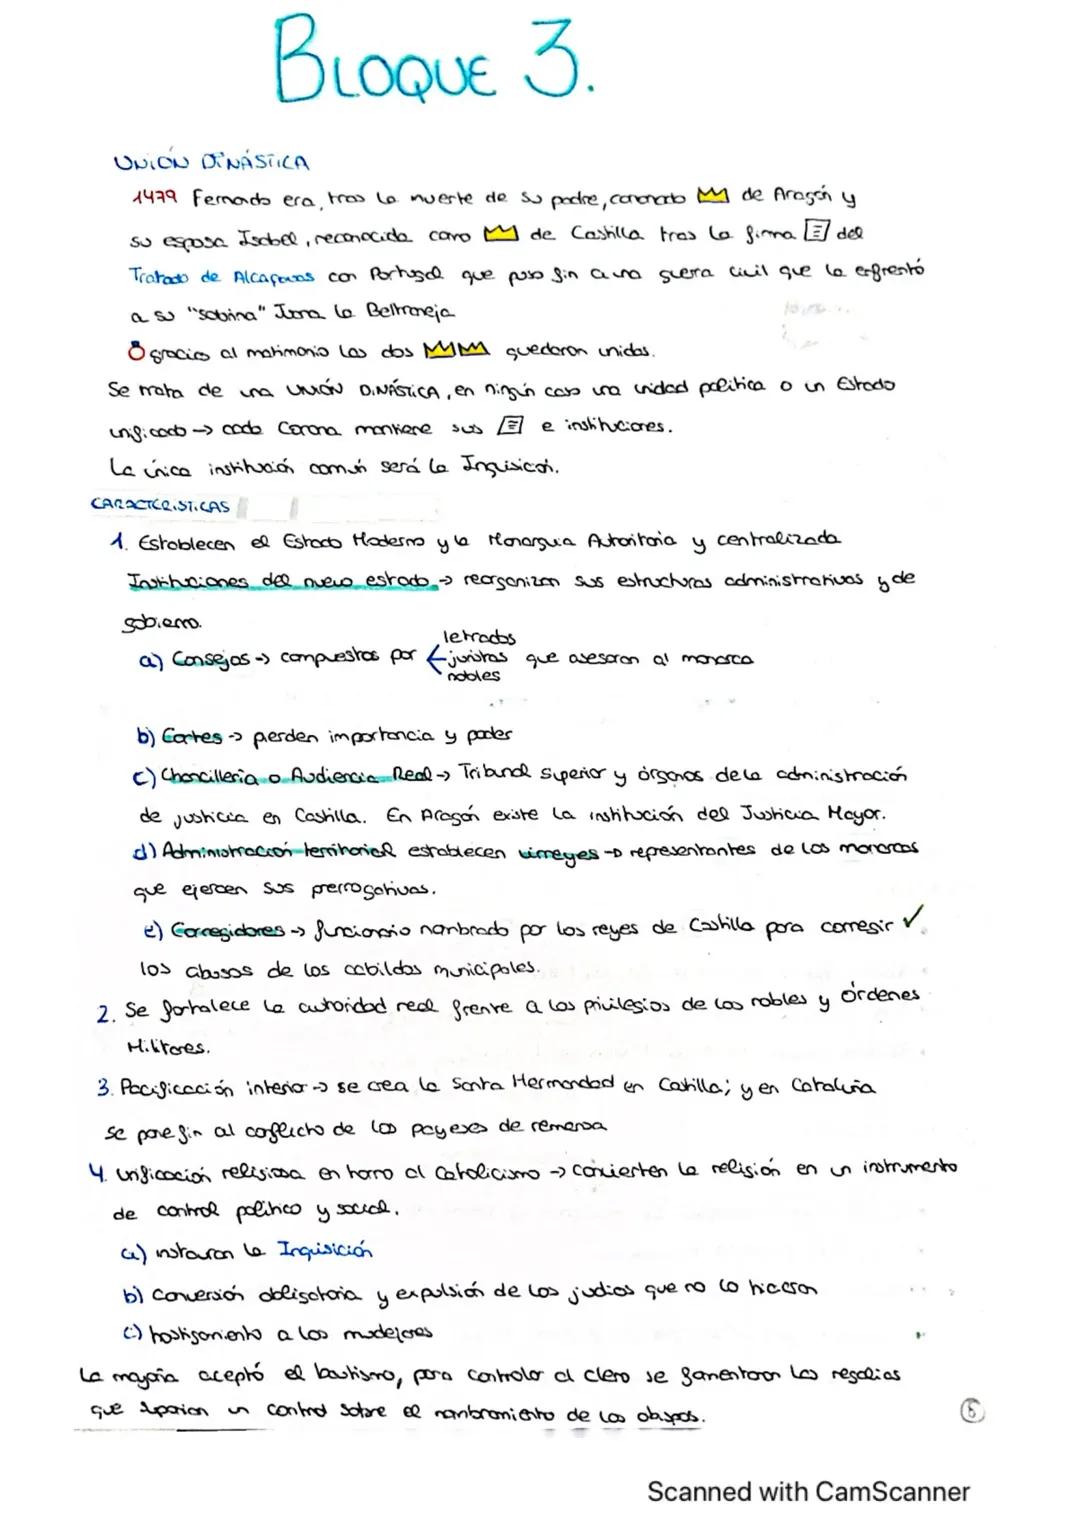 BLOQUE 3.
UNIÓN DINÁSTICA
1479 Fernando era, tras la muerte de su padre, coronado de Aragón y
su esposa Isabel, reconocida como de Castilla tras la firma del
Tratado de Alcaçovas con Portugal que puso fin a una guerra civil que la enfrentó
a su "sobrina" Juana la Beltraneja
gracias al matrimonio las dos quedaron unidas.
Se trata de una UNIÓN DINÁSTICA, en ningún caso una unidad política o un Estado
unificado → cada Corona mantiene sus e instituciones.
La única institución común será la Inquisición.
CARACTERÍSTICAS
1. Establecen el Estado Moderno y la Monarquía Autoritaria y centralizada
Instituciones del nuevo estado → reorganizan sus estructuras administrativas y de
gobierno.
letrados
a) Consejos → compuestos por juristas que asesoran al monarca
nobles
b) Cortes → pierden importancia y poder
c) Chancillería o Audiencia Real → Tribunal superior y órganos de la administración
de justicia en Castilla. En Aragón existe la institución del Justicia Mayor.
d) Administración territorial establecen virreyes → representantes de los monarcas
que ejercen sus prerrogativas.
e) Corregidores → funcionario nombrado por los reyes de Castilla para corregir ✓
los abusos de los cabildos municipales.
2. Se fortalece la autoridad real frente a los privilegios de los nobles y órdenes
Militares.
3. Pacificación interior → se crea la Santa Hermandad en Castilla; y en Cataluña
se pone fin al conflicto de los payeses de remensa
4. unificación religiosa en torno al Catolicismo → convierten la religión en un instrumento
de control político y social.
a) instauran la Inquisición
b) conversión obligatoria y expulsión de los judíos que no lo hicieron
c) hostigamiento a los mudéjares
La mayoría aceptó el bautismo, para controlar al clero se fomentaron las regalías
que suponían un control sobre el nombramiento de los obispos.
Scanned with CamScanner